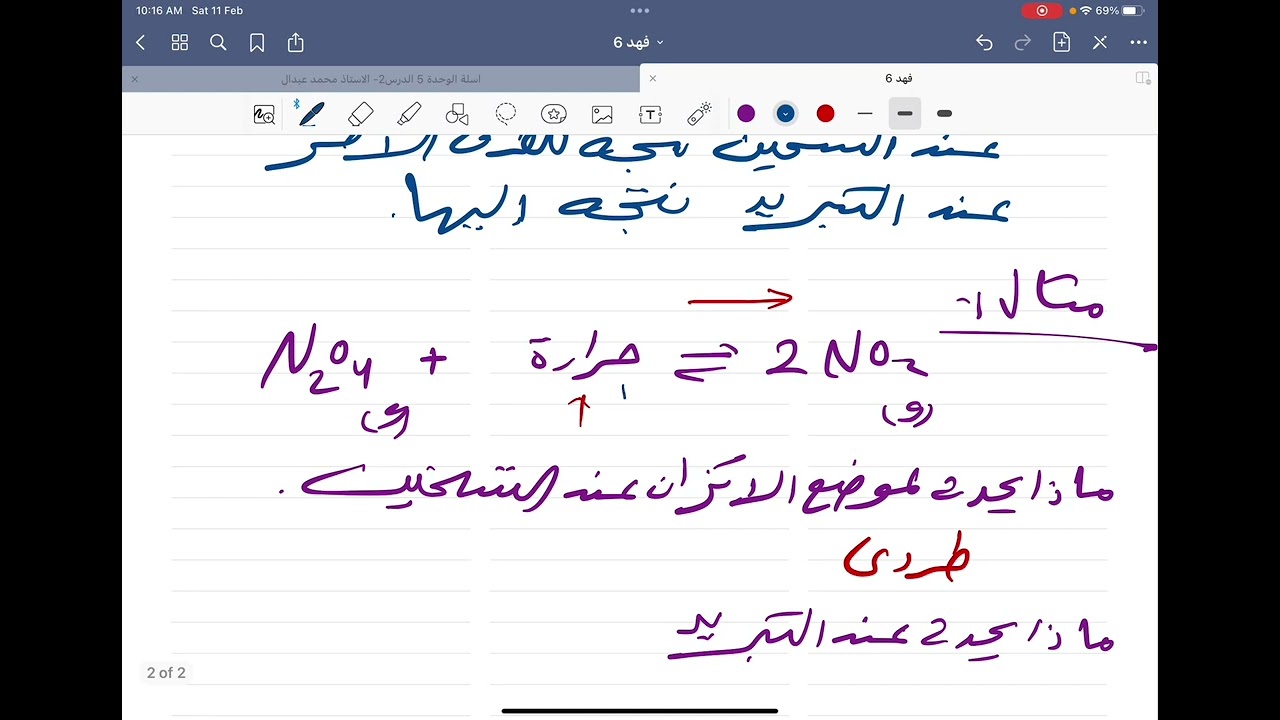 10:16 AM Sat 11 Feb
69%
فهد 6
اسلة الوحدة 5 الدرس2- الاستاذ محمد عبدال
فهد 6
عند التسخين نتجه للطرف الاخر
عند التبريد نتجه اليها.
مثال 1-
N2O4 + حرارة ⇌ 2 NO2
(و) (و)
ماذا يحدث لموضع الاتزان عند التسخين.
طردي
ماذا يحدث عند التبريد
2 of 2